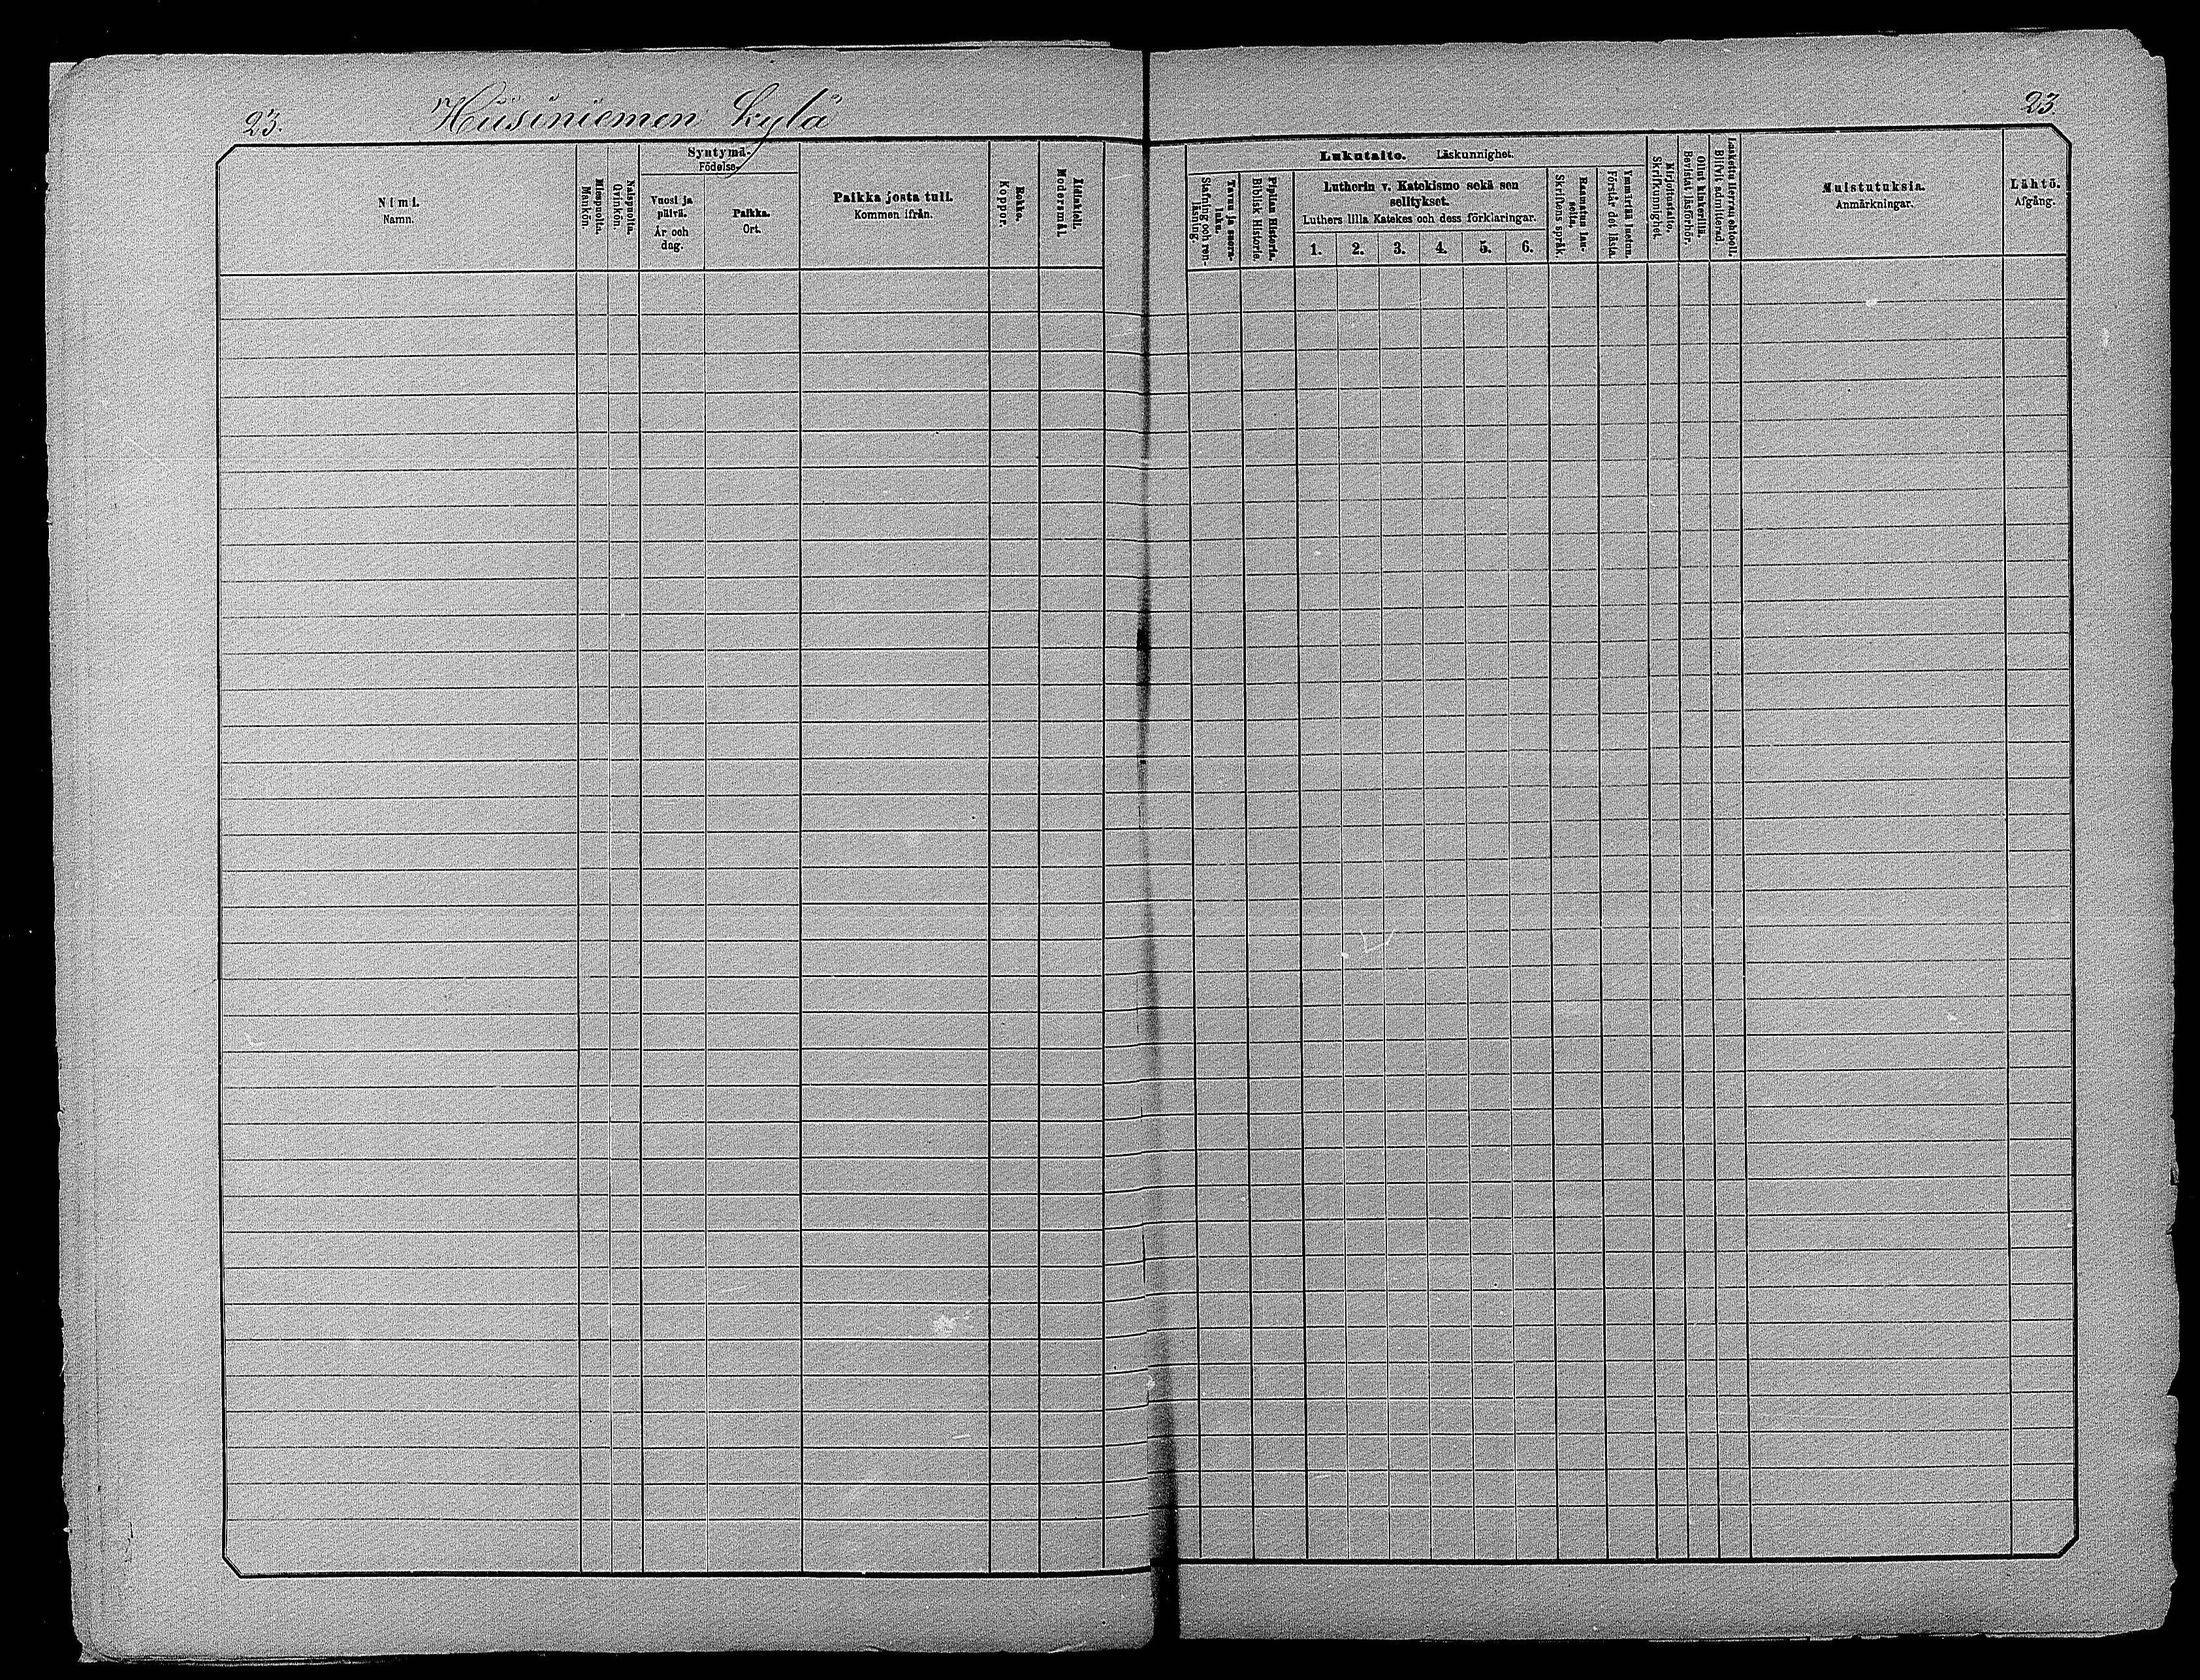 23. Hiisiniemen kylä
23.
Nimi.
Namn.
Miespuolia.
Mankön.
Naispuolia.
Qvinkön.
Syntymä-
Födelse-
Vuosi ja
päivä.
År och
dag.
Paikka.
Ort.
Paikka josta tuli.
Kommen ifrån.
Rokko.
Koppor.
Äidinkieli.
Modersmål
Lukutaito. Läskunnighet.
Tavuu ja suora-
luku.
Stafning och ren-
läsning.
Piplian Historia.
Biblisk Historie.
Lutherin v. Katekismo sekä sen
selitykset.
Luthers lilla Katekes och dess förklaringar.
1. 2. 3. 4. 5. 6.
Raamatun lau-
seita.
Skriftens språk.
Ymmärtää luetun.
Förstår det lästa.
Kirjoitustaito.
Skrifkunnighet.
Ollut kinkerillä.
Bevistat läsförhör.
Laskettu Herran ehtooll.
Blifvit admitterad.
Muistutuksia.
Anmärkningar.
Lähtö.
Afgång.